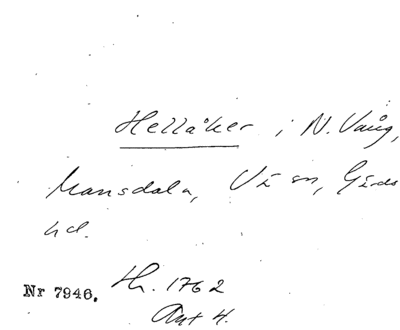 Hellåker i N. Vång,
Mansdala, Vä sn, Gärds
hd.
Nr 7946. Hr. 1762
Ant 4.